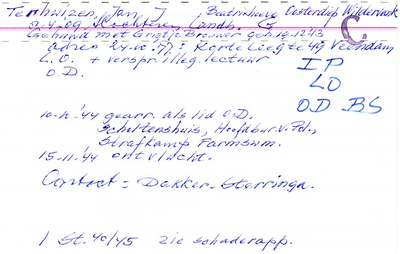 Terhuizen, Jan, J. Beatrixhoeve Oosterdiep Wildervank
C
Gehuwd met Grietje Brouwer geb. 19-12-13
adres 24-10-'77: Korte Leegte 49 Veendam
L.O. + verspr. illeg. lectuur
O.D.
I P
LO
OD BS
10-11-'44 gearr. als lid O.D.
Scholtenshuis, Hoofdbur. v. Pol.,
Strafkamp Farmsum.
15-11-'44 ontvlucht.
Contact = Dekker-Sterringa.
1 St. 40/45 zie schaderapp.